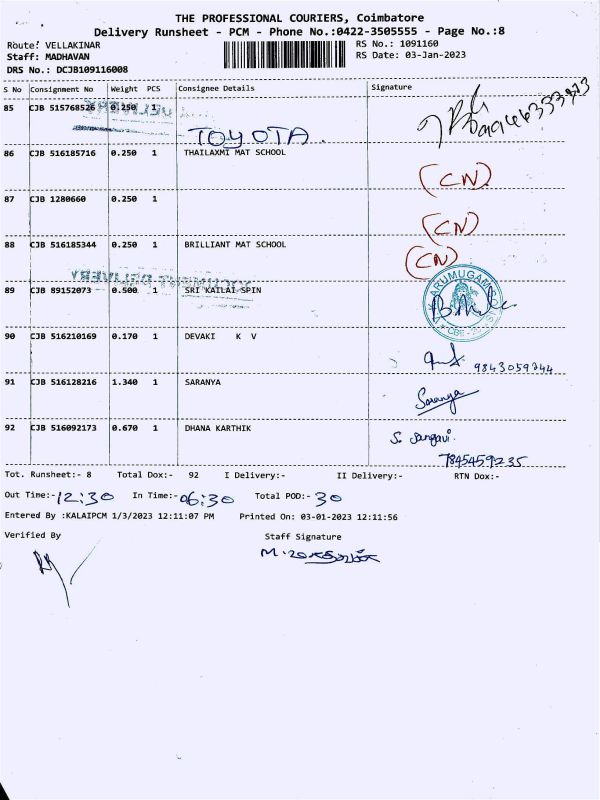 THE PROFESSIONAL COURIERS, Coimbatore
Delivery Runsheet - PCM - Phone No.:0422-3505555 - Page No.:8
Route: VELLAKINAR RS No.: 1091160
Staff: MADHAVAN RS Date: 03-Jan-2023
DRS No.: DCJB109116008
S No Consignment No Weight PCS Consignee Details Signature
85 CJB 515768526 0.250 1
TOYOTA.
86 CJB 516185716 0.250 1 THAILAXMI MAT SCHOOL
(CN)
87 CJB 1280660 0.250 1
(CN)
88 CJB 516185344 0.250 1 BRILLIANT MAT SCHOOL
(CN)
DOCUMENT DELIVERY
89 CJB 89152073 0.500 1 SRI KAILAI SPIN
90 CJB 516210169 0.170 1 DEVAKI K V
9843059244
91 CJB 516128216 1.340 1 SARANYA
Saranya
92 CJB 516092173 0.670 1 DHANA KARTHIK
S. Sangavi.
7845459235
Tot. Runsheet:- 8 Total Dox:- 92 I Delivery:- II Delivery:- RTN Dox:-
Out Time:- 12:30 In Time:- 06:30 Total POD:- 30
Entered By :KALAIPCM 1/3/2023 12:11:07 PM Printed On: 03-01-2023 12:11:56
Verified By Staff Signature